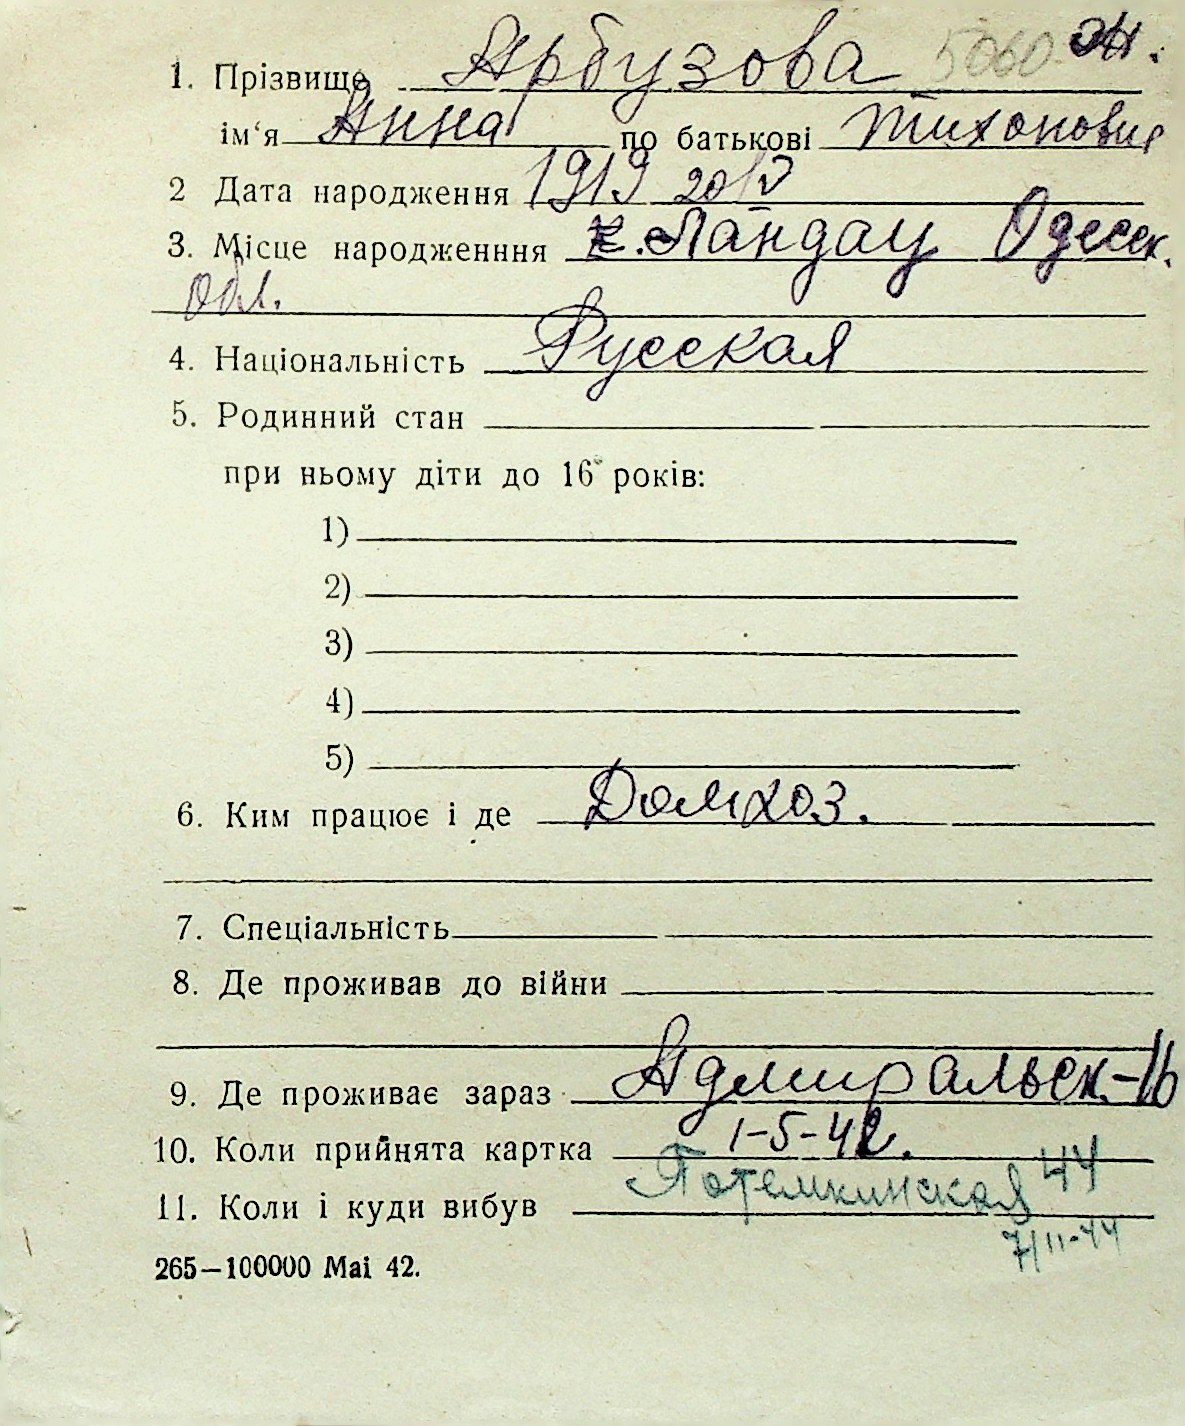 1. Прізвище Арбузова 5060
ім‘я Анна по батькові Тихоновна
2 Дата народження 1919 20/V
3. Місце народженння Ландау Одесск.
обл.
4. Національність Русская
5. Родинний стан
при ньому діти до 16 років:
1)
2)
3)
4)
5)
6. Ким працює і де Домхоз.
7. Спеціальність
8. Де проживав до війни
9. Де проживає зараз Адмиральск-16
10. Коли прийнята картка 1-5-42.
11. Коли і куди вибув Потемкинская 44
7/II-44
265—100000 Mai 42.